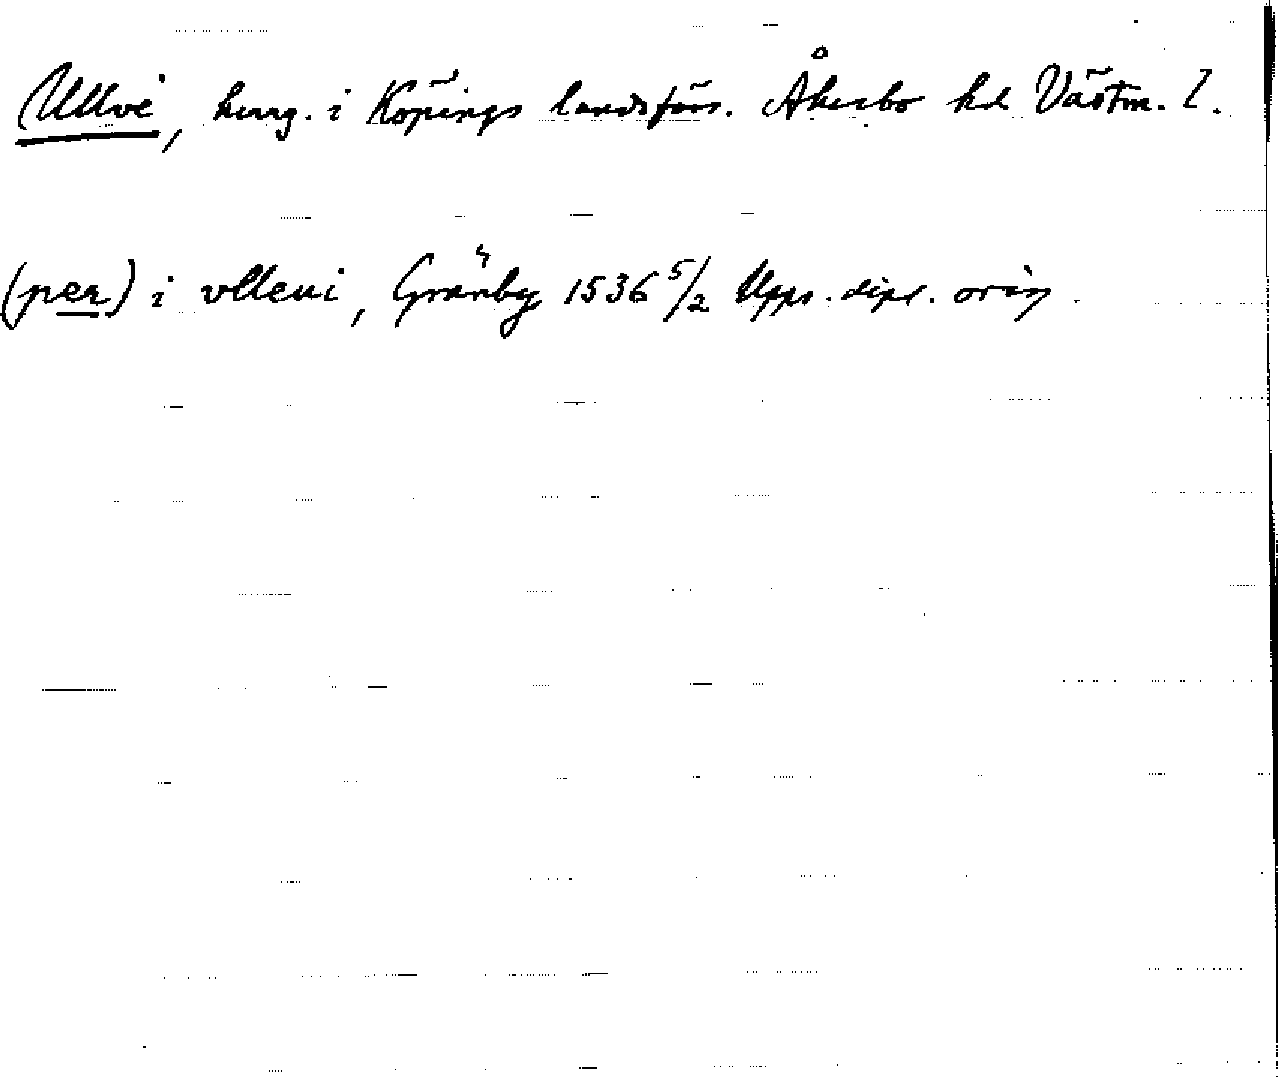 Ullvi, herrg. i Köpings landsförs. Åkerbo hd Västm. l.
(per) i vlleui, Gränby 1536 5/2 Upps. dipl. orig.